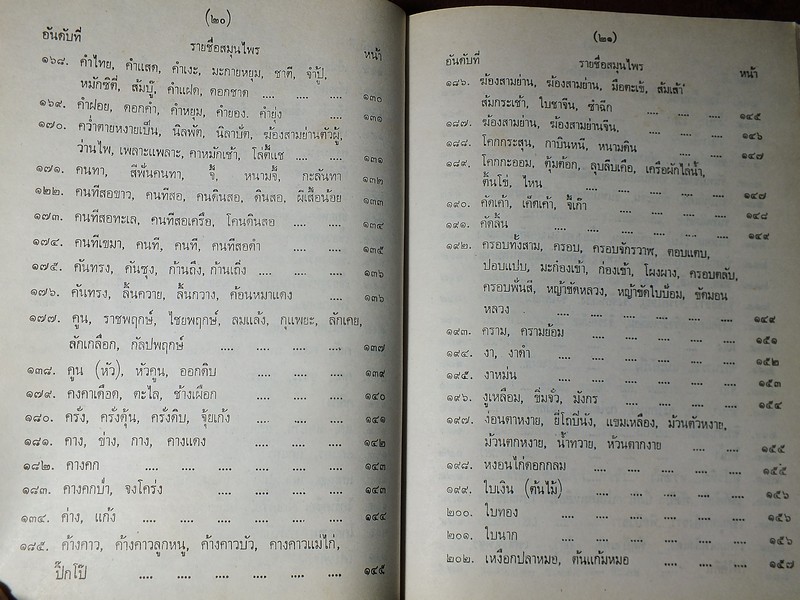 (๒๐)
อันดับที่ รายชื่อสมุนไพร หน้า
๑๖๘. คำไทย, คำแสด, คำเงะ, มะกายหยุม, ชาตี, จำปู้,
หมักซิตี่, ส้มบู๊, คำแฝด, ดอกชาด .... .... .... ๑๓๐
๑๖๙. คำฝอย, ดอกคำ, คำหยุม, คำยอง. คำยุ่ง .... ๑๓๑
๑๗๐. คว่ำตายหงายเป็น, นิลพัต, นิลาปัต, ฆ้องสามย่านตัวผู้,
ว่านไพ, เพลาะแพลาะ, คาหมักเช้า, โล้ตี้แช .... .... ๑๓๑
๑๗๑. คนทา, สีฟันคนทา, จี้, หนามจี้, กะลันทา ๑๓๒
๑๒๒. คนทีสอขาว, คนทีสอ, คนดินสอ, ดินสอ, ผีเสื้อน้อย ๑๓๓
๑๗๓. คนทีสอทะเล, คนทีสอเครือ, โคนดินสอ .... .... ๑๓๔
๑๗๔. คนทีเขมา, คนที, คนที, คนทีสอดำ .... .... ๑๓๕
๑๗๕. คันทรง, คันซุง, ก้านถึง, ก้านเถิง .... .... .... ๑๓๖
๑๗๖. คันทรง, ลิ้นควาย, ลิ้นกวาง, ค้อนหมาแดง .... .... ๑๓๖
๑๗๗. คูน, ราชพฤกษ์, ไชยพฤกษ์, ลมแล้ง, กุแพยะ, ลักเคย,
ลักเกลือก, กัลปพฤกษ์ .... .... .... .... ๑๓๗
๑๓๘. คูน (หัว), หัวคูน, ออกดิบ .... .... .... ๑๓๙
๑๗๙. คงคาเดือด, ตะไล, ช้างเผือก .... .... .... ๑๔๐
๑๘๐. ครั่ง, ครั่งตุ้น, ครั่งดิบ, จุ้ยเก้ง .... .... .... ๑๔๑
๑๘๑. คาง, ข่าง, กาง, คางแดง .... .... .... ๑๔๒
๑๘๒. คางคก .... .... .... .... .... .... ๑๔๓
๑๘๓. คางคกป่ำ, จงโคร่ง .... .... .... .... ๑๔๓
๑๓๔. ค่าง, แก้ง .... .... .... .... .... .... ๑๔๔
๑๘๕. ค้างคาว, ค้างคาวลูกหนู, ค้างคาวบัว, คางคาวแม่ไก่,
ปี๊กโป๊ .... .... .... .... .... .... ๑๔๕
(๒๑)
อันดับที่ รายชื่อสมุนไพร หน้า
๑๘๖. ฆ้องสามย่าน, ฆ้องสามย่าน, มือตะเข้, ส้มเส้า
ส้มกระเช้า, ใบชาจีน, ซำฉิก .... .... .... ๑๔๕
๑๘๗. ฆ้องสามย่าน, ฆ้องสามย่านจีน, .... .... .... ๑๔๖
๑๘๘. โคกกระสุน, กาบินหนี, หนามดิน .... .... .... ๑๔๗
๑๘๙. โคกกะออม, ตุ้มต้อก, ลุบลีบเคือ, เครือผักไล่น้ำ,
ติ้นโข่, ไหน .... .... .... .... .... ๑๔๗
๑๙๐. คัดเค้า, เค็ดเค้า, จี้เก๊า .... .... .... .... ๑๔๘
๑๙๑. คัดลิ้น .... .... .... .... .... .... ๑๔๙
๑๙๒. ครอบทั้งสาม, ครอบ, ครอบจักรวาพ, ตอบแตบ,
ปอบแปบ, มะก่องเข้า, ก่องเข้า, โผงผาง, ครอบตลับ,
ครอบฟันสี, หญ้าขัดหลวง, หญ้าขัดใบป้อม, ขัดมอน
หลวง .... .... .... .... .... .... ๑๔๙
๑๙๓. คราม, ครามย้อม .... .... .... .... .... ๑๕๑
๑๙๔. งา, งาดำ .... .... .... .... .... .... ๑๕๒
๑๙๕. งาหม่น .... .... .... .... .... .... ๑๕๓
๑๙๖. งูเหลือม, ขิ่มจั่ว, มังกร .... .... .... .... ๑๕๔
๑๙๗. ง่อนตาหงาย, ยี่โถปีนัง, แขมเหลือง, ม้วนตัวหงาย,
ม้วนตกหงาย, น้ำทวาย, ห้วนตากงาย .... .... .... ๑๕๕
๑๙๘. หงอนไก่ดอกกลม .... .... .... .... .... ๑๕๕
๑๙๙. ใบเงิน (ต้นไม้) .... .... .... .... ๑๕๖
๒๐๐. ใบทอง .... .... .... .... .... .... ๑๕๖
๒๐๑. ใบนาก .... .... .... .... .... .... ๑๕๖
๒๐๒. เหงือกปลาหมอ, ต้นแก้มหมอ .... .... .... ๑๕๗